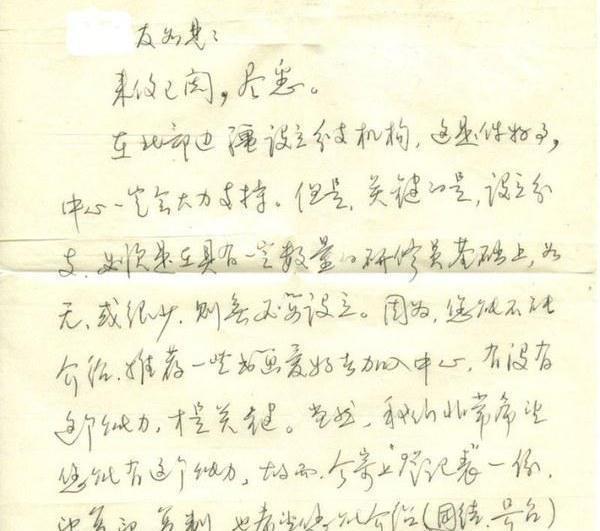 友如见：
来信已阅，尽悉。
在北部边疆设立分支机构，这是件好事，
中心一定会大力支持。但是，关键的是，设立分
支，必须是在具有一定数量的研修员基础上，如
无、或很少，则无必要设立。因为，您能不能
介绍、推荐一些书画爱好者加入中心，有没有
这个能力，才是关键。当然，我们非常希望
您能有这个能力，故而，今寄上"登记表"一份，
复印，复制，也希望您能介绍(团结、